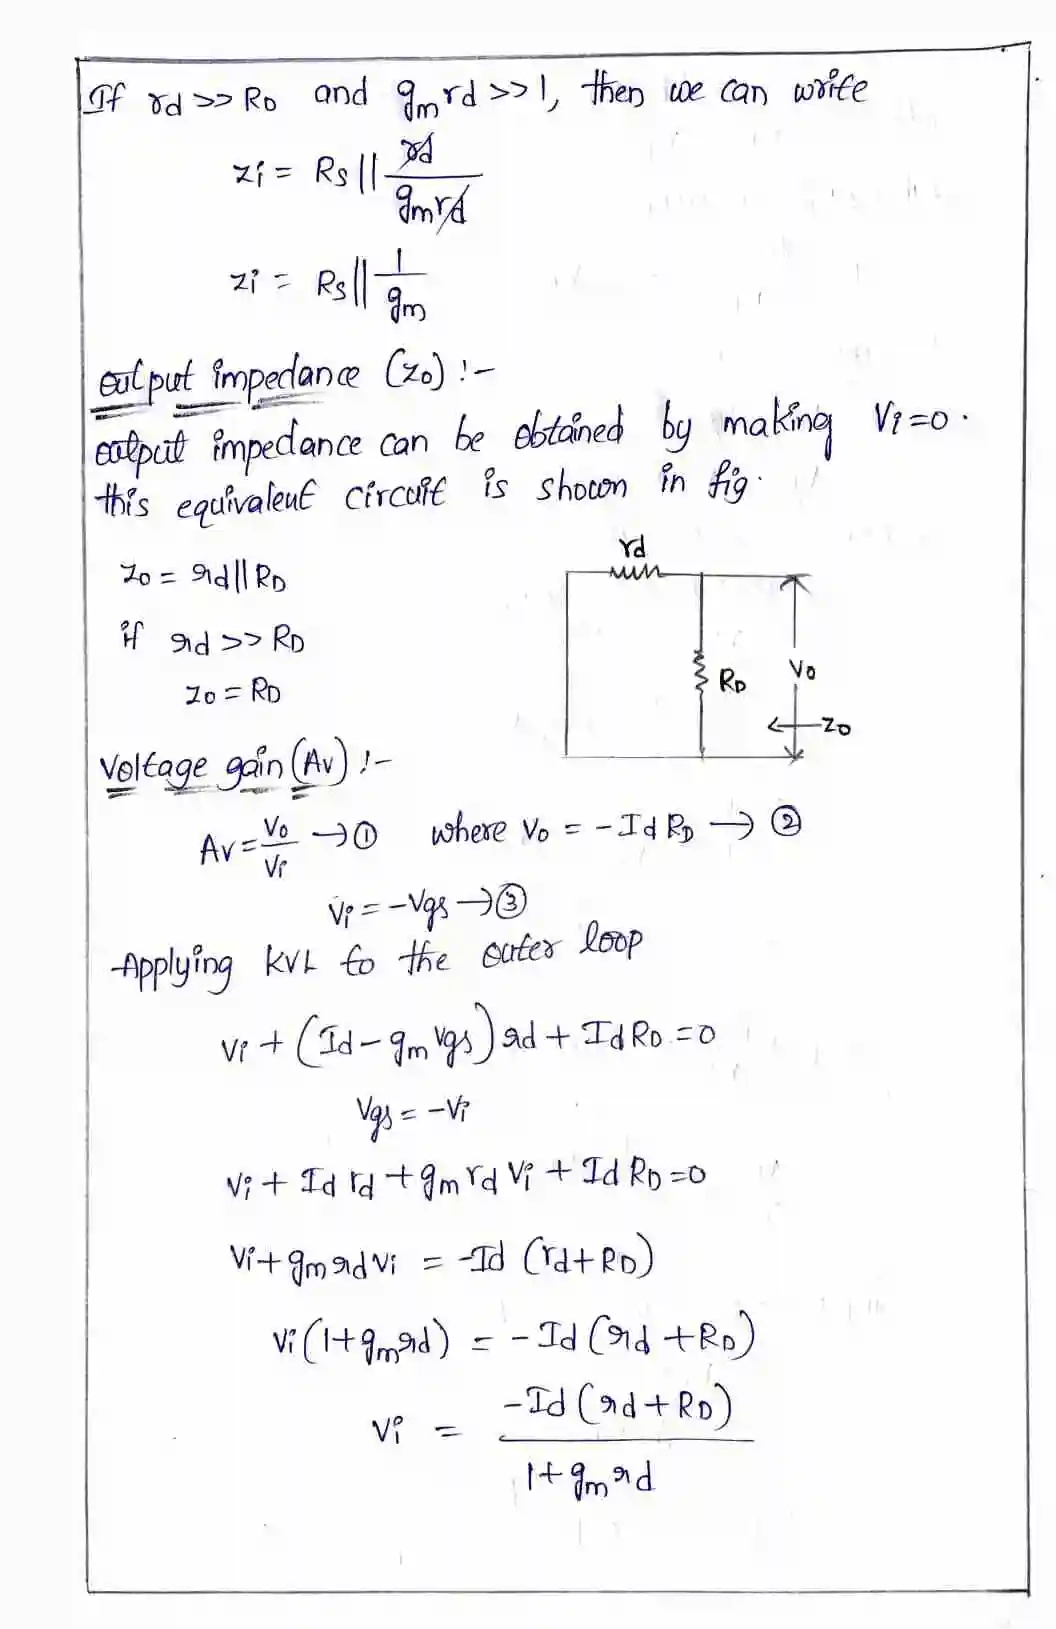 If rd >> RD and gmrd >> 1, then we can write
Zi = Rs || rd / gmrd
Zi = Rs || 1 / gm
output impedance (Zo) :-
output impedance can be obtained by making Vi=0.
this equivalent circuit is shown in fig.
Zo = rd || RD
if rd >> RD
Zo = RD
rd
RD
Vo
Zo
Voltage gain (Av) :-
Av = Vo / Vi → ① where Vo = - Id RD → ②
Vi = - Vgs → ③
Applying KVL to the outer loop
Vi + (Id - gm Vgs) rd + Id RD = 0
Vgs = - Vi
Vi + Id rd + gm rd Vi + Id RD = 0
Vi + gm rd Vi = - Id (rd + RD)
Vi (1 + gm rd) = - Id (rd + RD)
Vi = - Id (rd + RD) / 1 + gm rd